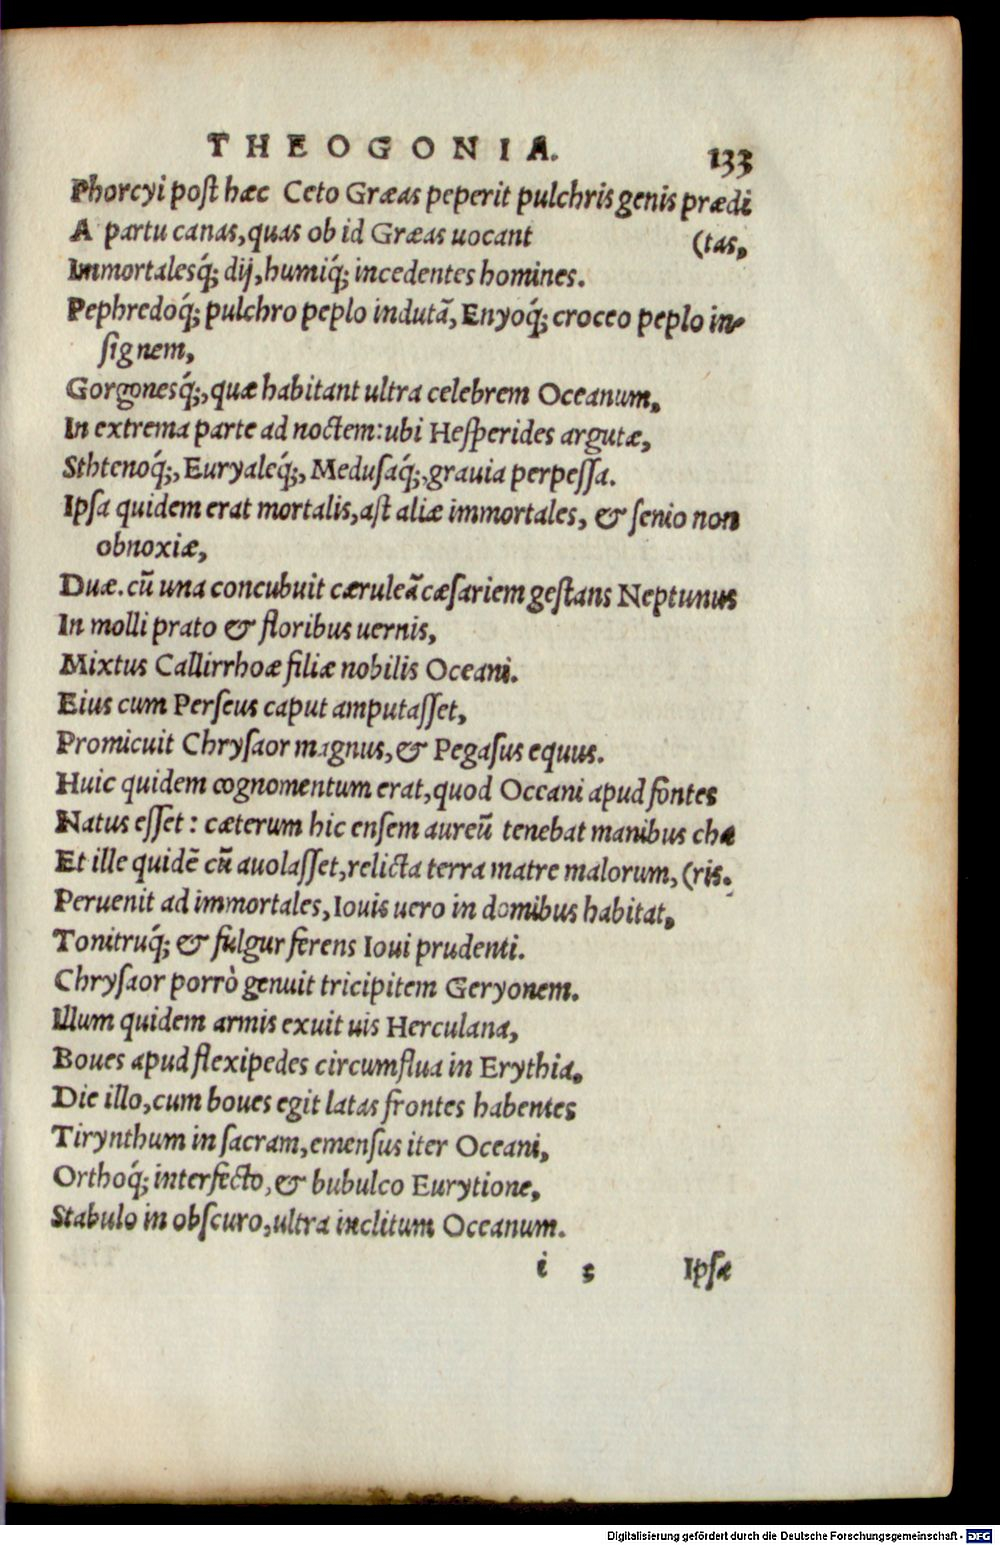 THEOGONIA. 133
Phorcyi post hæc Ceto Græas peperit pulchris genis prædi
A partu canas, quas ob id Græas uocant (tas,
Immortalesq́; dij, humiq́; incedentes homines.
Pephredoq́; pulchro peplo indutã, Enyoq́; croceo peplo in-
signem,
Gorgonesq́;, quæ habitant ultra celebrem Oceanum,
In extrema parte ad noctem: ubi Hesperides argutæ,
Sthtenoq́;, Euryaleq́;, Medusaq́;, grauia perpessa.
Ipsa quidem erat mortalis, ast aliæ immortales, & senio non
obnoxiæ,
Duæ. cũ una concubuit cæruleã cæsariem gestans Neptunus
In molli prato & floribus uernis,
Mixtus Callirrhoæ filiæ nobilis Oceani.
Eius cum Perseus caput amputasset,
Promicuit Chrysaor magnus, & Pegasus equus.
Huic quidem cognomentum erat, quod Oceani apud fontes
Natus esset: cæterum hic ensem aureũ tenebat manibus cha
Et ille quidẽ cũ auolasset, relicta terra matre malorum, (ris.
Peruenit ad immortales, Iouis uero in domibus habitat,
Tonitruq́; & fulgur ferens Ioui prudenti.
Chrysaor porrò genuit tricipitem Geryonem.
Illum quidem armis exuit uis Herculana,
Boues apud flexipedes circumflua in Erythia,
Die illo, cum boues egit latas frontes habentes
Tirynthum in sacram, emensus iter Oceani,
Orthoq́; interfecto, & bubulco Eurytione,
Stabulo in obscuro, ultra inclitum Oceanum.
i 5 Ipsæ
Digitalisierung gefördert durch die Deutsche Forschungsgemeinschaft - DFG